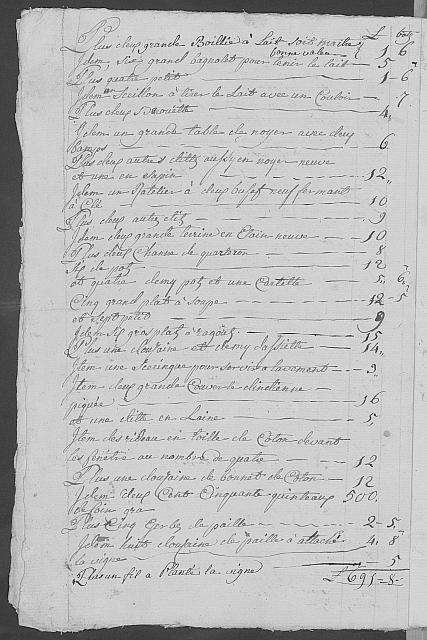 £ bat
Plus deux grande Boillie à Lait soit maitre
bonne valeur 1 6
Idem, six grand bagnolet pour tenir le lait 5
Plus quatre petit 1 6
Idem un Seillon à tirer le Lait avec un Couloir 7
Plus deux Berouëtte 4
Idem un grande table de noyer avec deux
bancs 6
Plus deux autres ditte aussy en noyer neuve
et une en sapin 12
Idem un Ratelier à deux buffet neuf fermant
à Clé 10
Plus deux autre dit 9
Idem deux grande terrine en Etain neuve 10
Plus deux Chanse de quarteron 8
Six de pot 12
et quatre demy pot et une Cartette 5 6
Cinq grand plat à soupe 12 5
et sept petit 9
Idem six gros plat à ragout 15
Plus une douzaine et demy d'assiette 14
Item une Seringue pour servir à lavement 3
Item deux grande Couverte d'indienne
piquée 16
et une ditte en Laine 5
Item des rideau en toille de Coton devant
les fenêtre au nombre de quatre 12
Plus une douzaine de bonnet de Coton 12
Idem deux Cent Cinquante quinteaux 500
de foin gras
Plus Cinq Gerbe de paille 2 5
Idem huit douzaine de paille à attaché 4 8
la vigne 5
Plus un fil a Planté la vigne
£ 691 8